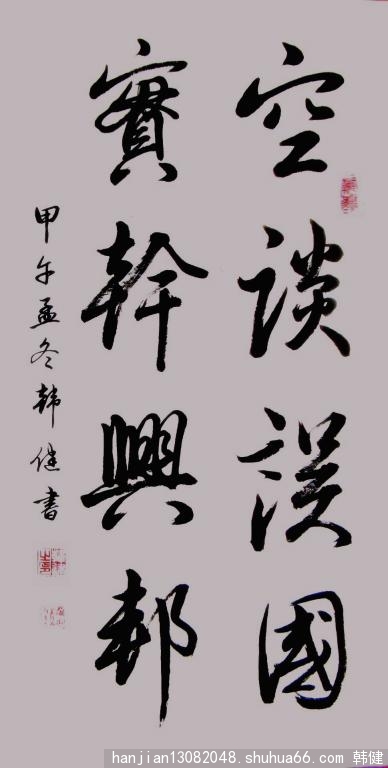 空談誤國
實幹興邦
甲午孟冬韩健書
hanjian13082048.shuhua66.com 韩健